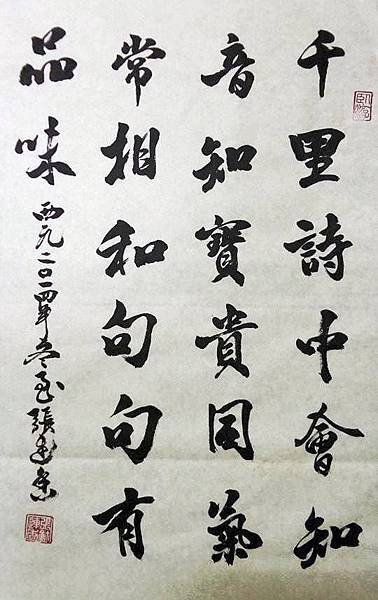 千里詩中會知
音知寶貴同氣
常相和句句有
品味
西元二〇一四年冬至張